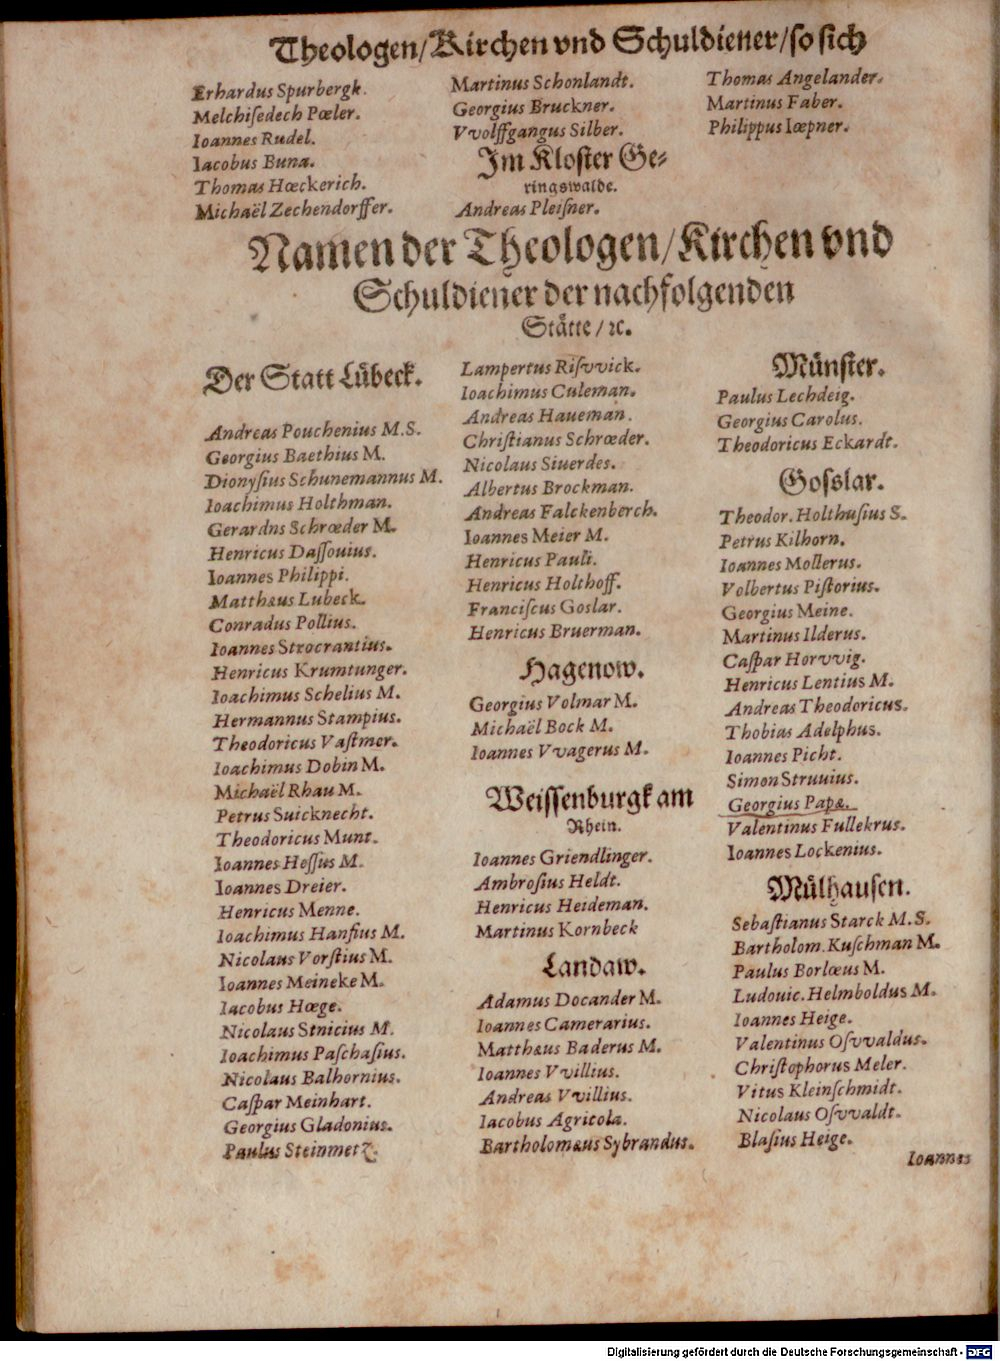 Theologen/Kirchen vnd Schuldiener/so sich
Erhardus Spurbergk.
Melchiſedech Pœler.
Ioannes Rudel.
Iacobus Buna.
Thomas Hœckerich.
Michaël Zechendorffer.
Martinus Schonlandt.
Georgius Bruckner.
Vvolffgangus Silber.
Im Kloſter Ge⸗
ringswalde.
Andreas Pleiſner.
Thomas Angelander.
Martinus Faber.
Philippus Iœpner.
Namen der Theologen/Kirchen vnd
Schuldiener der nachfolgenden
Staͤtte/ꝛc.
Der Statt Luͤbeck.
Andreas Pouchenius M.S.
Georgius Baethius M.
Dionyſius Schunemannus M.
Ioachimus Holthman.
Gerardns Schrœder M.
Henricus Daſſouius.
Ioannes Philippi.
Matthæus Lubeck.
Conradus Pollius.
Ioannes Strocrantius.
Henricus Krumtunger.
Ioachimus Schelius M.
Hermannus Stampius.
Theodoricus Vaſtmer.
Ioachimus Dobin M.
Michaël Rhau M.
Petrus Suicknecht.
Theodoricus Munt.
Ioannes Heſſus M.
Ioannes Dreier.
Henricus Menne.
Ioachimus Hanfius M.
Nicolaus Vorſtius M.
Ioannes Meineke M.
Iacobus Hœge.
Nicolaus Stnicius M.
Ioachimus Paſchaſius.
Nicolaus Balhornius.
Caſpar Meinhart.
Georgius Gladonius.
Paulus Steinmetz.
Lampertus Riſvvick.
Ioachimus Culeman.
Andreas Haueman.
Chriſtianus Schrœder.
Nicolaus Siuerdes.
Albertus Brockman.
Andreas Falckenberch.
Ioannes Meier M.
Henricus Pauli.
Henricus Holthoff.
Franciſcus Goslar.
Henricus Bruerman.
Hagenow.
Georgius Volmar M.
Michaël Bock M.
Ioannes Vvagerus M.
Weiſſenburgk am
Rhein.
Ioannes Griendlinger.
Ambroſius Heldt.
Henricus Heideman.
Martinus Kornbeck
Landaw.
Adamus Docander M.
Ioannes Camerarius.
Matthæus Baderus M.
Ioannes Vvillius.
Andreas Vvillius.
Iacobus Agritola.
Bartholomæus Sybrandus.
Muͤnſter.
Paulus Lechdeig.
Georgius Carolus.
Theodoricus Eckardt.
Goſslar.
Theodor. Holthuſius S.
Petrus Kilhorn.
Ioannes Mollerus.
Volbertus Piſtorius.
Georgius Meine.
Martinus Ilderus.
Caſpar Horvvig.
Henricus Lentius M.
Andreas Theodoricus.
Thobias Adelphus.
Ioannes Picht.
Simon Struuius.
Georgius Papæ.
Valentinus Fullekrus.
Ioannes Lockenius.
Muͤlhauſen.
Sebaſtianus Starck M.S.
Bartholom. Kuſchman M.
Paulus Borlœus M.
Ludouic. Helmboldus M.
Ioannes Heige.
Valentinus Oſvvaldus.
Chriſtophorus Meler.
Vitus Kleinſchmidt.
Nicolaus Oſvvaldt.
Blaſius Heige.
Ioannes
Digitalisierung gefördert durch die Deutsche Forschungsgemeinschaft - DFG